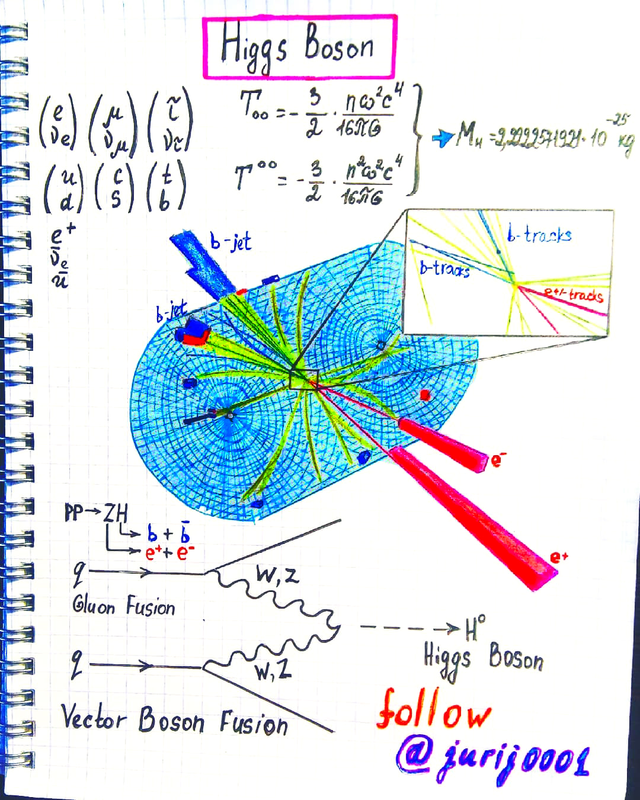 Higgs Boson
(e / νe) (μ / νμ) (τ̃ / ντ̃)
(u / d) (c / s) (t / b)
e⁺
ν̄e
ū
T₀₀ = - 3/2 · nω²c⁴/16πG
T⁰⁰ = - 3/2 · n²ω²c⁴/16πG
M_H = 2,222257 · 10⁻²⁵ kg
b-jet
b-jet
b-tracks
b-tracks
e+/- tracks
e⁻
e⁺
PP → ZH
b + b̄
e⁺ + e⁻
q
W, Z
Gluon Fusion
H⁰
Higgs Boson
q
W, Z
Vector Boson Fusion
follow
@jurij0001